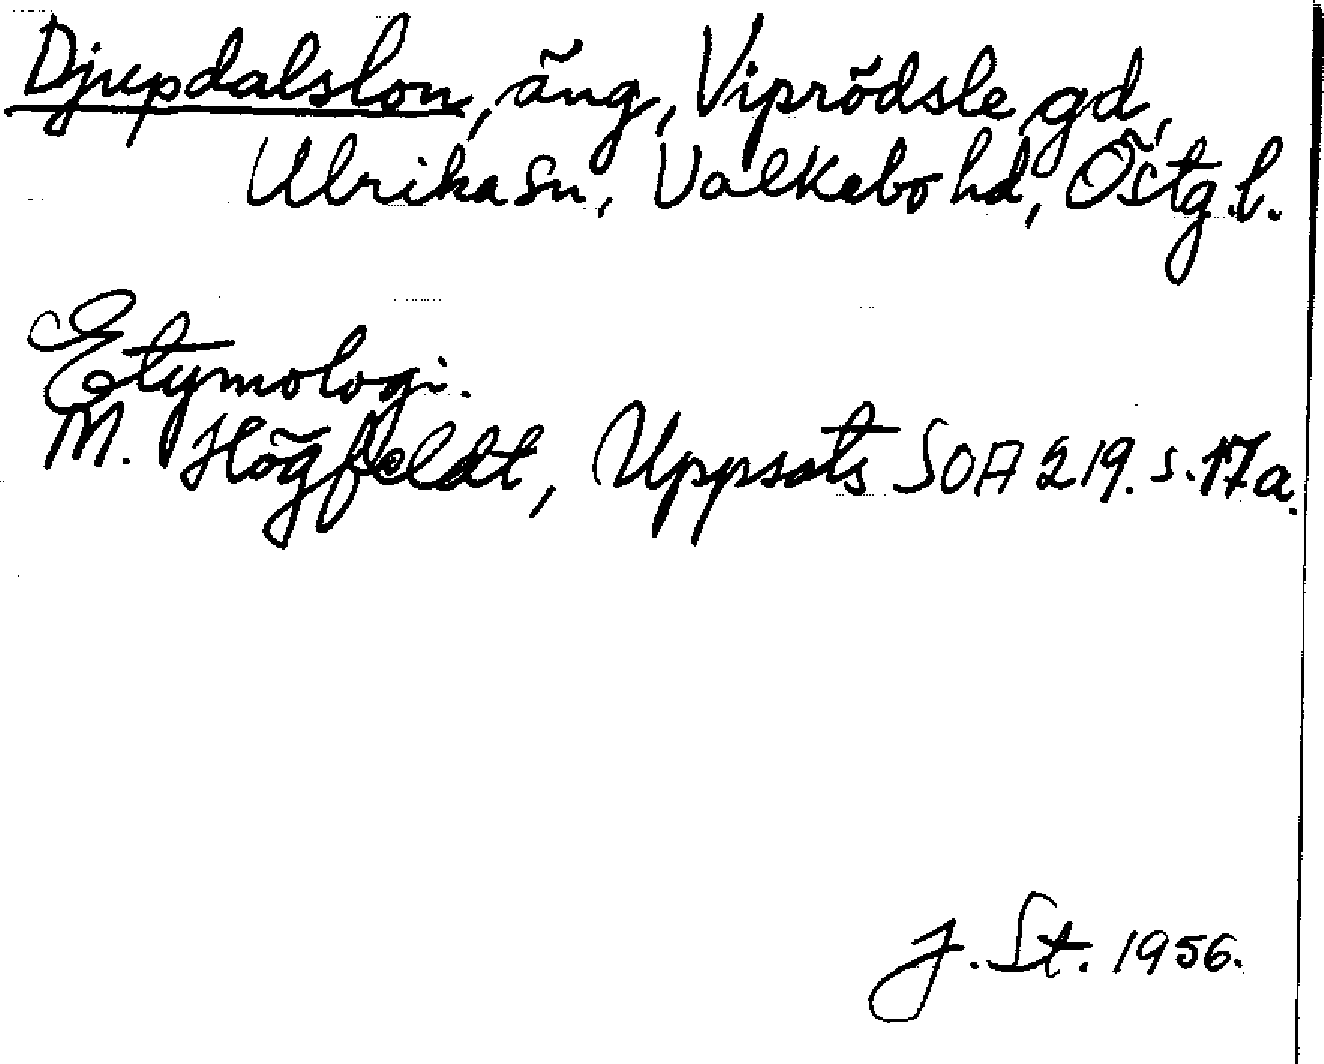 Djupdalslon, äng, Viprödsle gd,
Ulrika sn, Valkebo hd, Östg.l.
Etymologi.
M. Högfeldt, Uppsats SOA 219. s. 17a.
J. St. 1956.